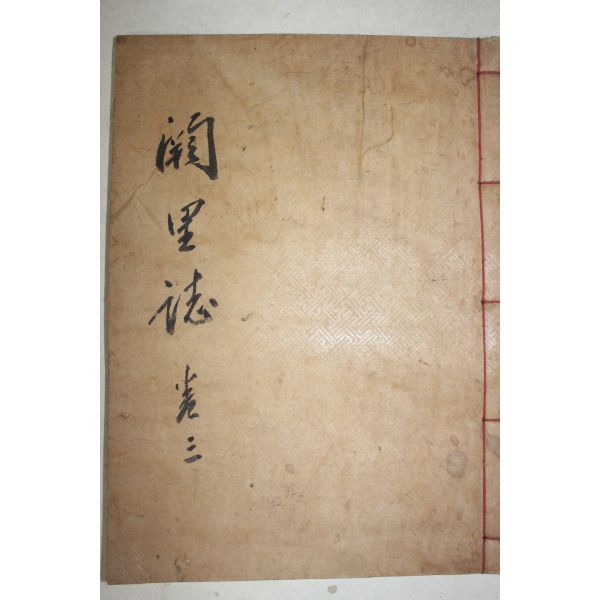 闕里誌 卷三